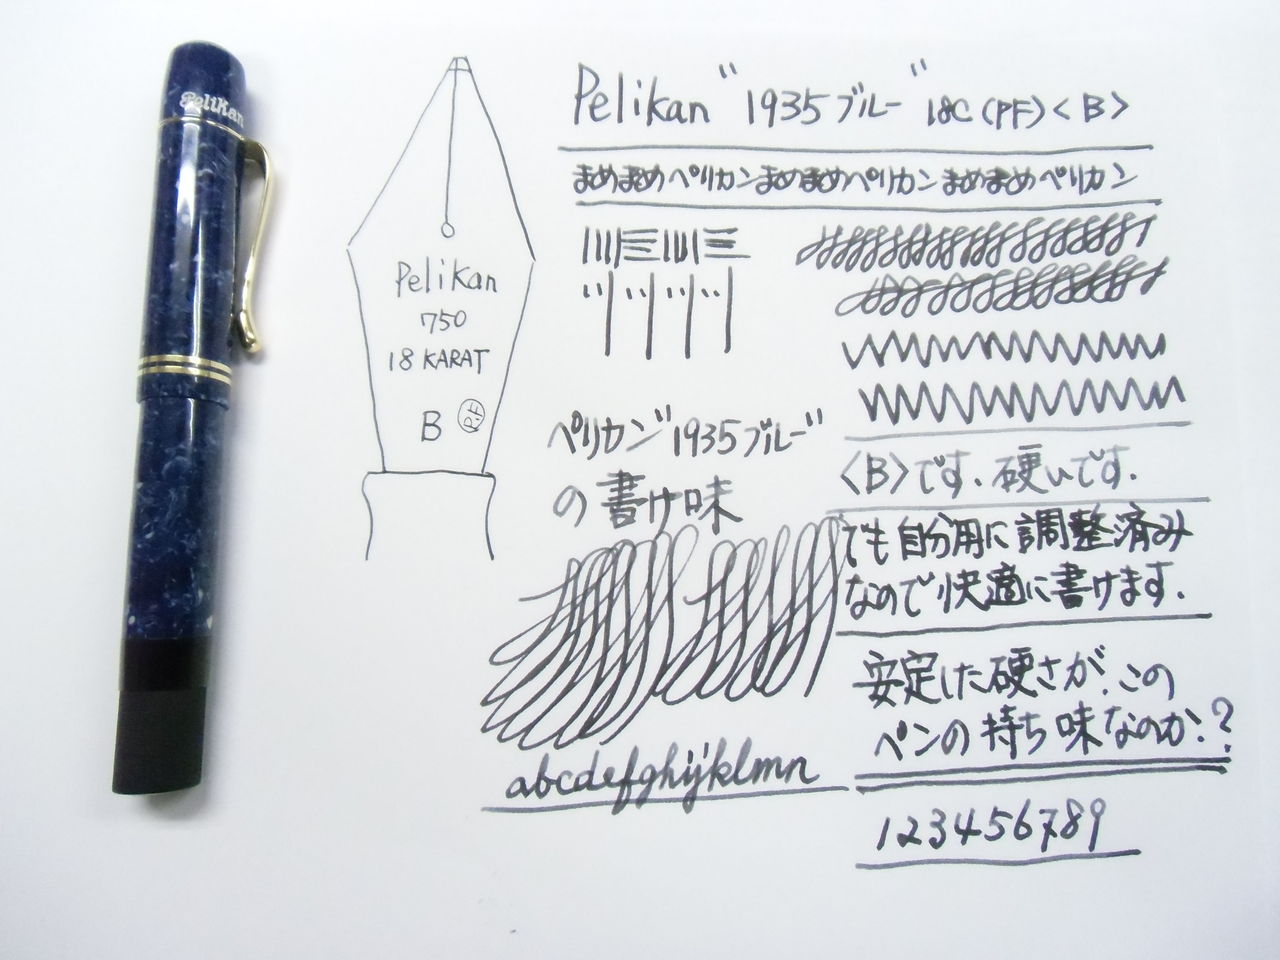 Pelikan
Pelikan "1935ブルー" 18C (PF) <B>
まめまめペリカンまめまめペリカンまめまめペリカン
Pelikan
750
18 KARAT
B PF
ペリカン"1935ブルー"
の書け味
abcdefghijklmn
<B>です.硬いです.
でも自分用に調整済み
なので快適に書けます.
安定した硬さが.この
ペンの持ち味なのか.?
123456789